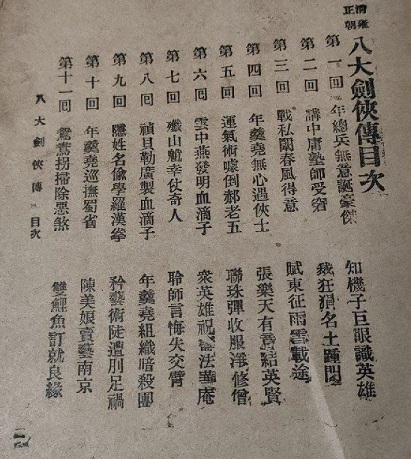 清雍
正朝
八大劍俠傳目次
第一回 年總兵無意誕豪傑 知機子巨眼識英雄
第二回 講中庸塾師受窘 狂狷名士踵門
第三回 戰闈春風得意 賦東征雨雪載途
第四回 年羹堯無心遇俠士 張樂天有意結英賢
第五回 運氣術嚎倒郝老五 聯珠彈收服淨修僧
第六回 雲中燕發明血滴子 衆英雄祝法華庵
第七回 山幸仗奇人 聆師言悔失交臂
第八回 禎貝勒廣製血滴子 年羹堯組織暗殺團
第九回 隱姓名偷學羅漢拳 矜藝術陡遭刖足禍
第十回 年羹堯巡撫蜀省 陳美娘賣藝南京
第十一回 鴛鴦拐掃除惡煞 雙鯉魚訂就良緣
八大劍俠傳 目次
一